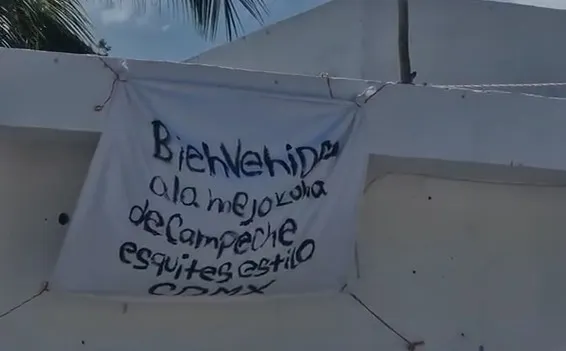 BienVenidos
a la mejor olla
de Campeche
esquites estilo
CDMX